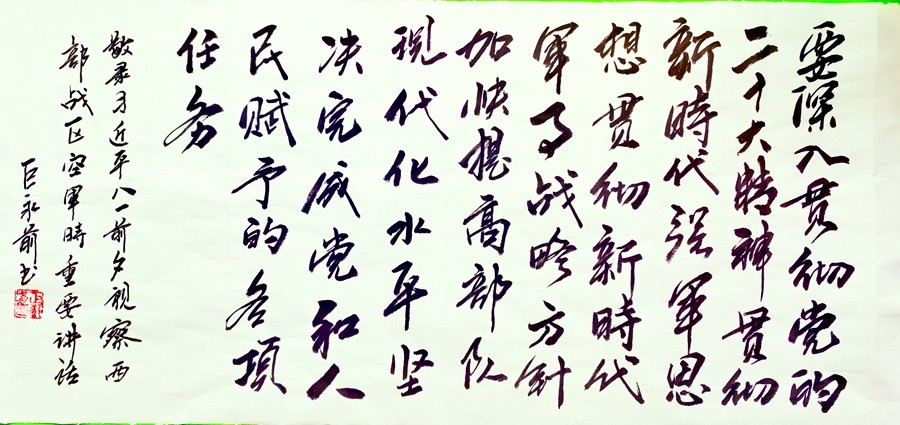 要深入贯彻党的
二十大精神贯彻
新時代强军思
想贯彻新時代
軍事战略方针
加快提高部队
现代化水平坚
决完成党和人
民赋予的各項
任务
敬录习近平八一前夕视察西
部战区空軍時重要讲话
巨永前书